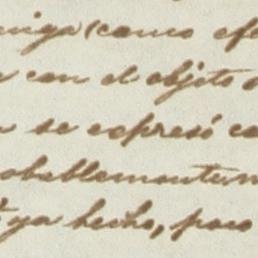 miga (como efe
con el objeto
se expresó co
obablemente un
ya hecho, poco